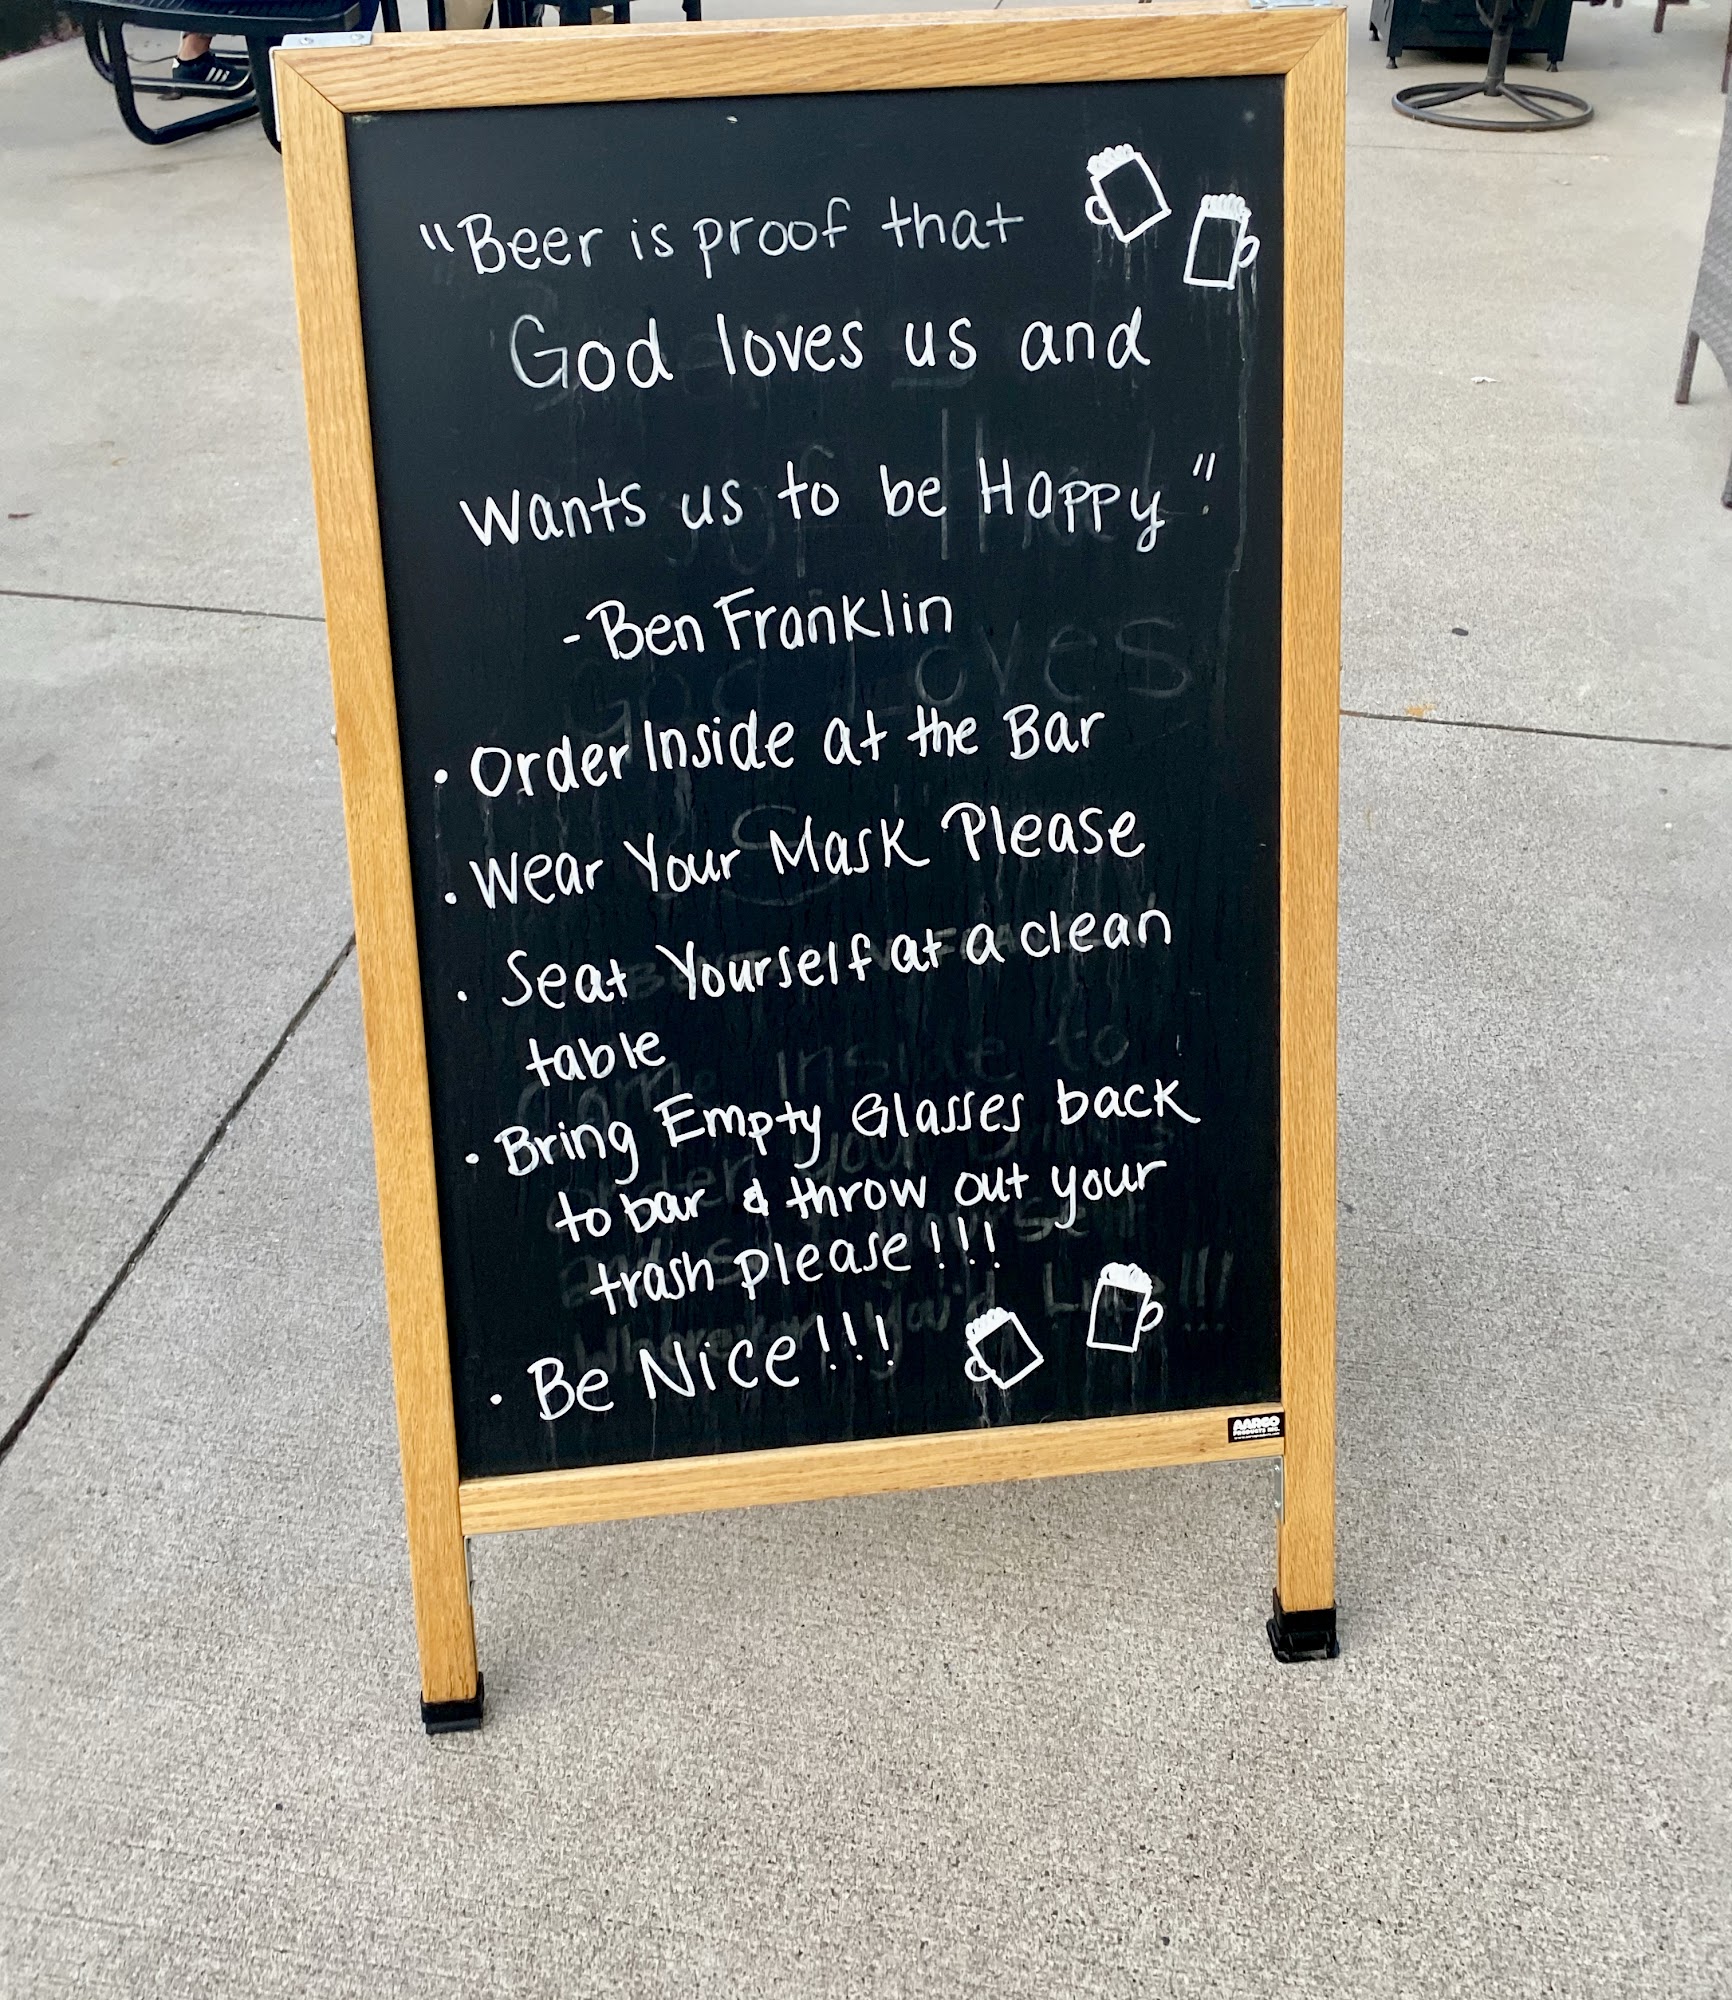 "Beer is proof that
God loves us and
Wants us to be Happy"
-Ben Franklin
• Order Inside at the Bar
• Wear Your Mask Please
• Seat Yourself at a clean
table
• Bring Empty Glasses back
to bar & throw out your
trash please!!!
• Be Nice!!!
AARCO
PRODUCTS INC.